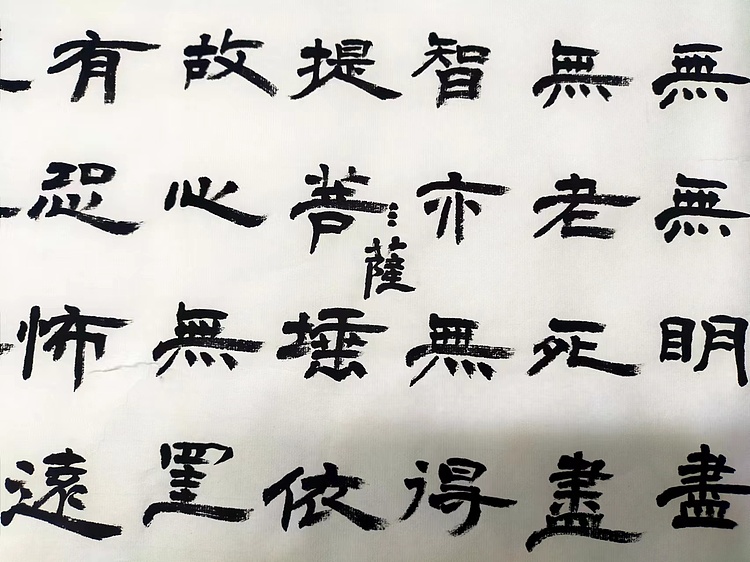 無無明盡
無老死盡
智亦無得
提菩薩埵依
故心無罣
有恐怖遠